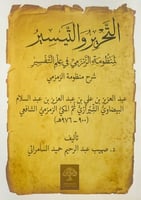 التحرير والتيسير
لمنظومة الزمزمي في علم التفسير
شرح منظومة الزمزمي
عبد العزيز بن علي بن عبد العزيز بن عبد السلام
البيضاوي الشيرازي ثم المكي الزمزمي الشافعي
(٩٠٠-٩٧٦هـ)
تأليف
د. صهيب عبد الرحيم حميد السامرائي